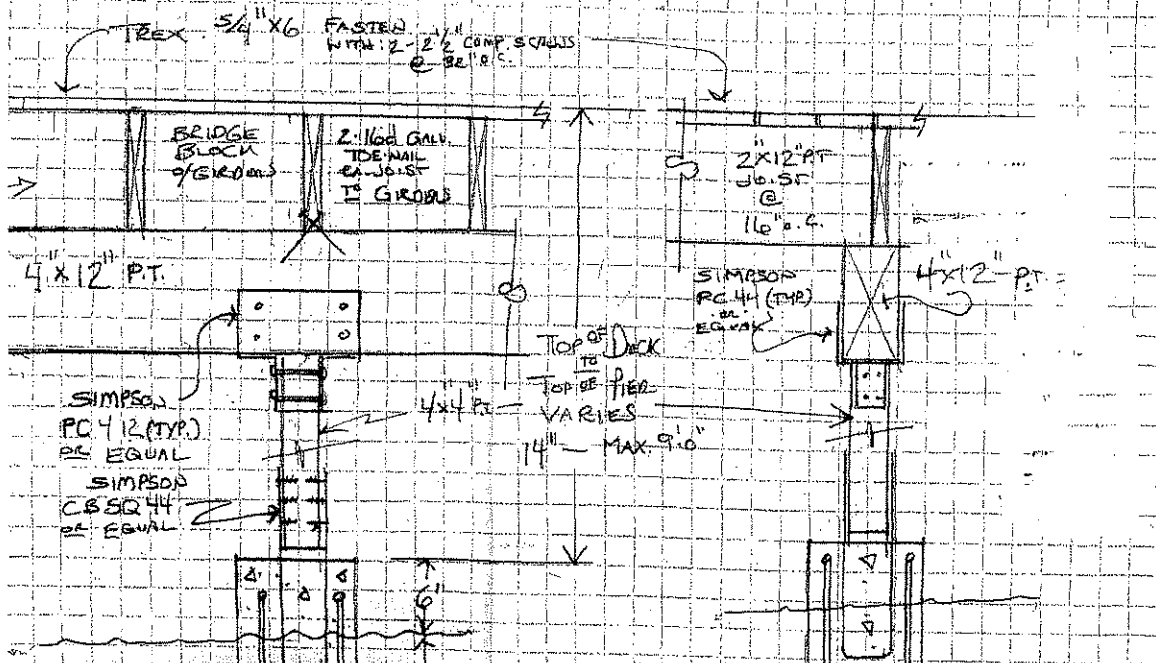 TREX 5/4"X6 FASTEN
WITH: 2-2 1/2" COMP. SCREWS
@ 32" O.C.
BRIDGE
BLOCK
O/GIRDERS
2-16d GALV.
TOE NAIL
EA. JOIST
TO GIRDERS
2"X12" PT
JOIST
@
16" O.C.
4"X12" P.T.
SIMPSON
PC 44 (TYP.)
OR
EQUAL
4"X12" P.T.
TOP OF DECK
TO
TOP OF PIER
VARIES
14" — MAX. 9'0"
4X4 P.T.
SIMPSON
PC 412 (TYP.)
OR EQUAL
SIMPSON
CBSQ 44
OR EQUAL
6"